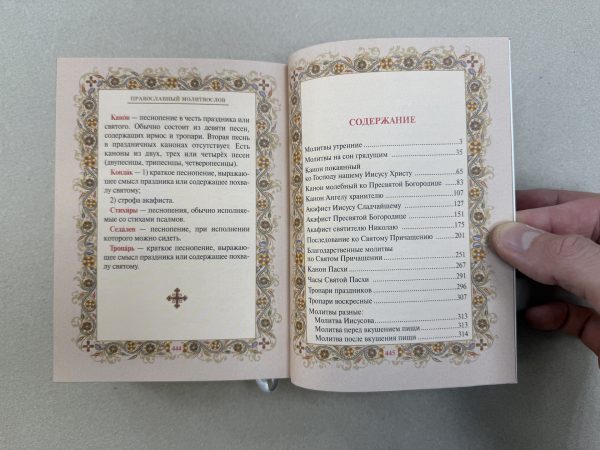 ПРАВОСЛАВНЫЙ МОЛИТВОСЛОВ
Кано́н — песнопение в честь праздника или
святого. Обычно состоит из девяти песен,
содержащих ирмос и тропари. Вторая песнь
в праздничных канонах отсутствует. Есть
каноны из двух, трех или четырёх песен
(двупесницы, трипесницы, четверопесницы).
Конда́к — 1) краткое песнопение, выражаю-
щее смысл праздника или содержащее похва-
лу святому;
2) строфа акафиста.
Стихи́ры — песнопения, обычно исполняе-
мые со стихами псалмов.
Седа́лен — песнопение, при исполнении
которого можно сидеть.
Тропа́рь — краткое песнопение, выражаю-
щее смысл праздника или содержащее похва-
лу святому.
444
СОДЕРЖАНИЕ
Молитвы утренние 3
Молитвы на сон грядущим 35
Канон покаянный
ко Господу нашему Иисусу Христу 65
Канон молебный ко Пресвятой Богородице 83
Канон Ангелу хранителю 107
Акафист Иисусу Сладчайшему 127
Акафист Пресвятой Богородице 151
Акафист святителю Николаю 175
Последование ко Святому Причащению 201
Благодарственные молитвы
по Святом Причащении 251
Канон Пасхи 267
Часы Святой Пасхи 291
Тропари праздников 296
Тропари воскресные 307
Молитвы разные:
Молитва Иисусова 313
Молитва перед вкушением пищи 313
Молитва после вкушения пищи 314
445